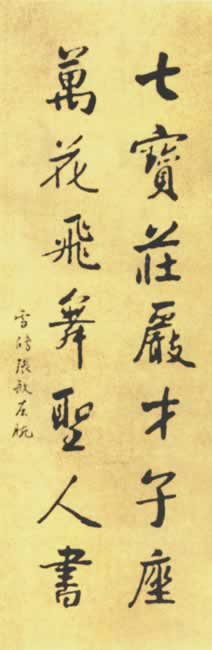 七寶莊嚴才子座
萬花飛舞聖人書
雪時張敬左腕